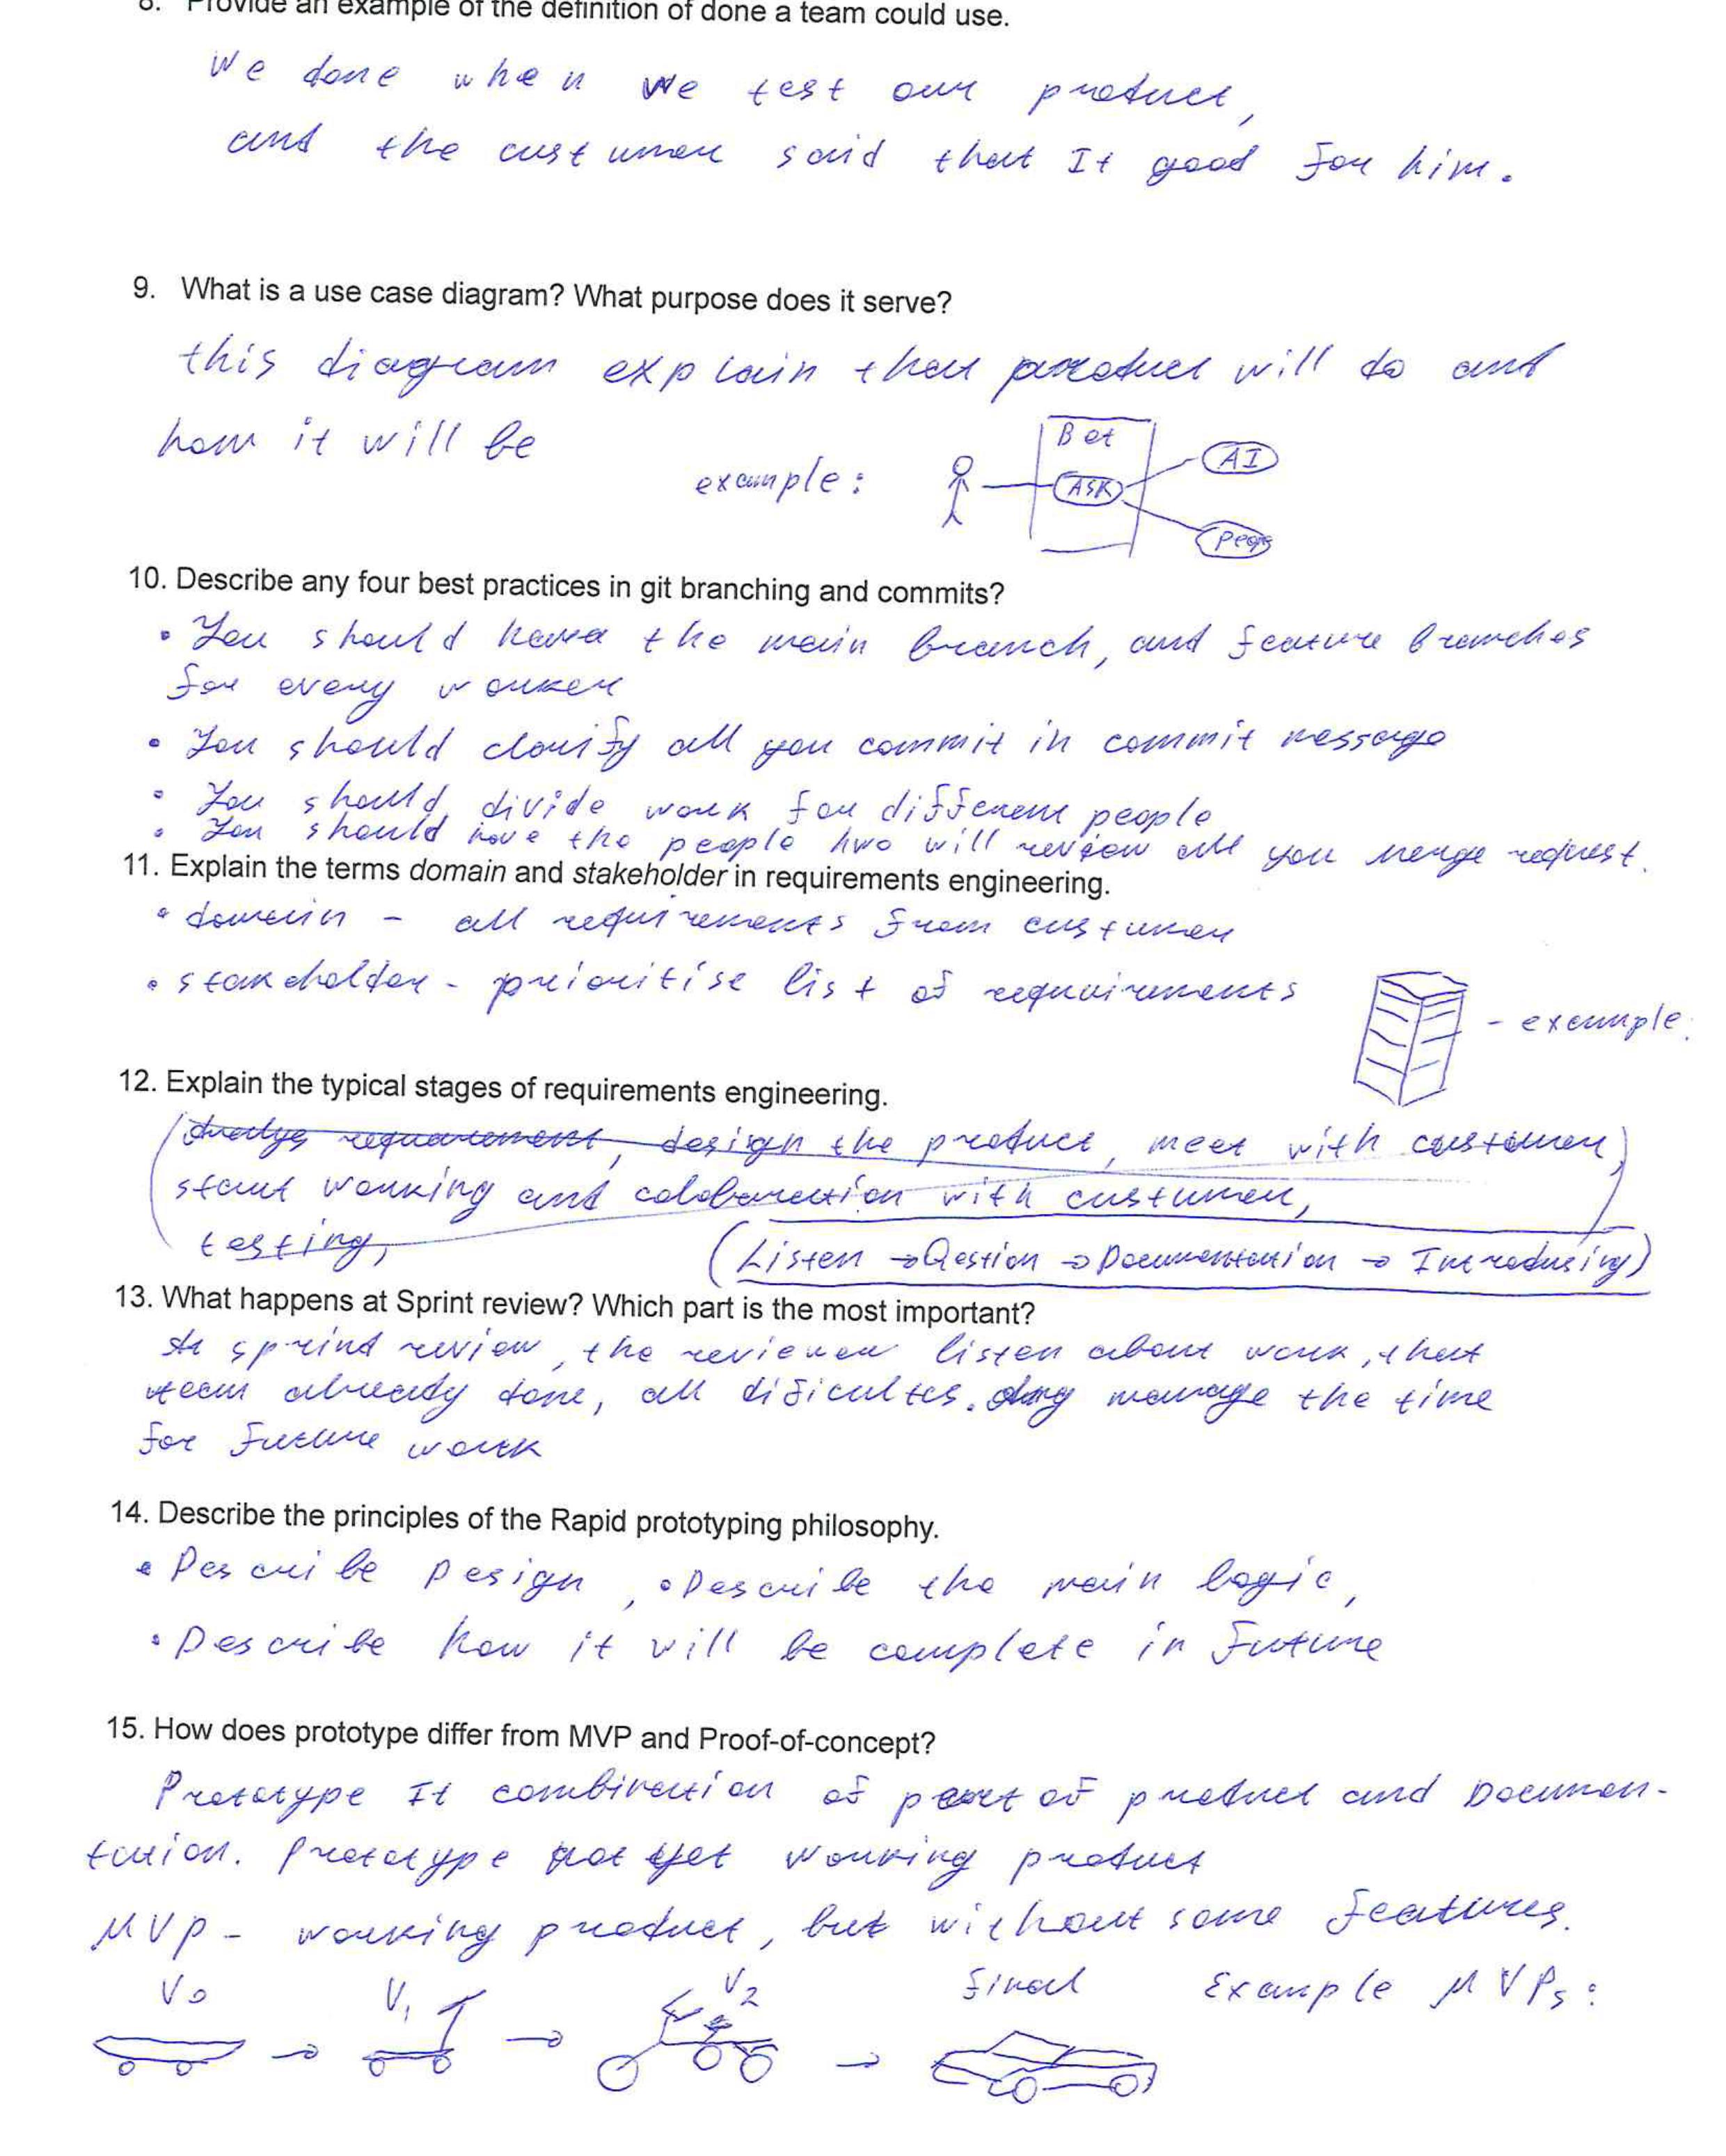 8. Provide an example of the definition of done a team could use.
We done when we test our product,
and the custumer said that It good for him.
9. What is a use case diagram? What purpose does it serve?
this diagram explain that product will do and
how it will be
example:
Bot
ASK
AI
People
10. Describe any four best practices in git branching and commits?
• You should have the main branch, and feature branches
for every worker
• You should clarify all you commit in commit message
• You should divide work for different people
• You should have the people hwo will review all you merge request.
11. Explain the terms domain and stakeholder in requirements engineering.
• domain - all requirements from custumer
• stakeholder - prioritise list of requirements
- example.
12. Explain the typical stages of requirements engineering.
requarement, design the product, meet with custumer,
start working and coloboration with custumer,
testing,
(Listen → Qestion → Documentation → Introdusing)
13. What happens at Sprint review? Which part is the most important?
At sprind review, the reviewer listen about work, that
team already done, all dificultes. manage the time
for future work
14. Describe the principles of the Rapid prototyping philosophy.
• Describe Design, • Describe the main logic,
• Describe how it will be complete in future
15. How does prototype differ from MVP and Proof-of-concept?
Prototype It combination of part of product and Documen-
tation. Prototype not yet working product
MVP - working product, but without some features.
V0 V1 V2 final Example MVPs: